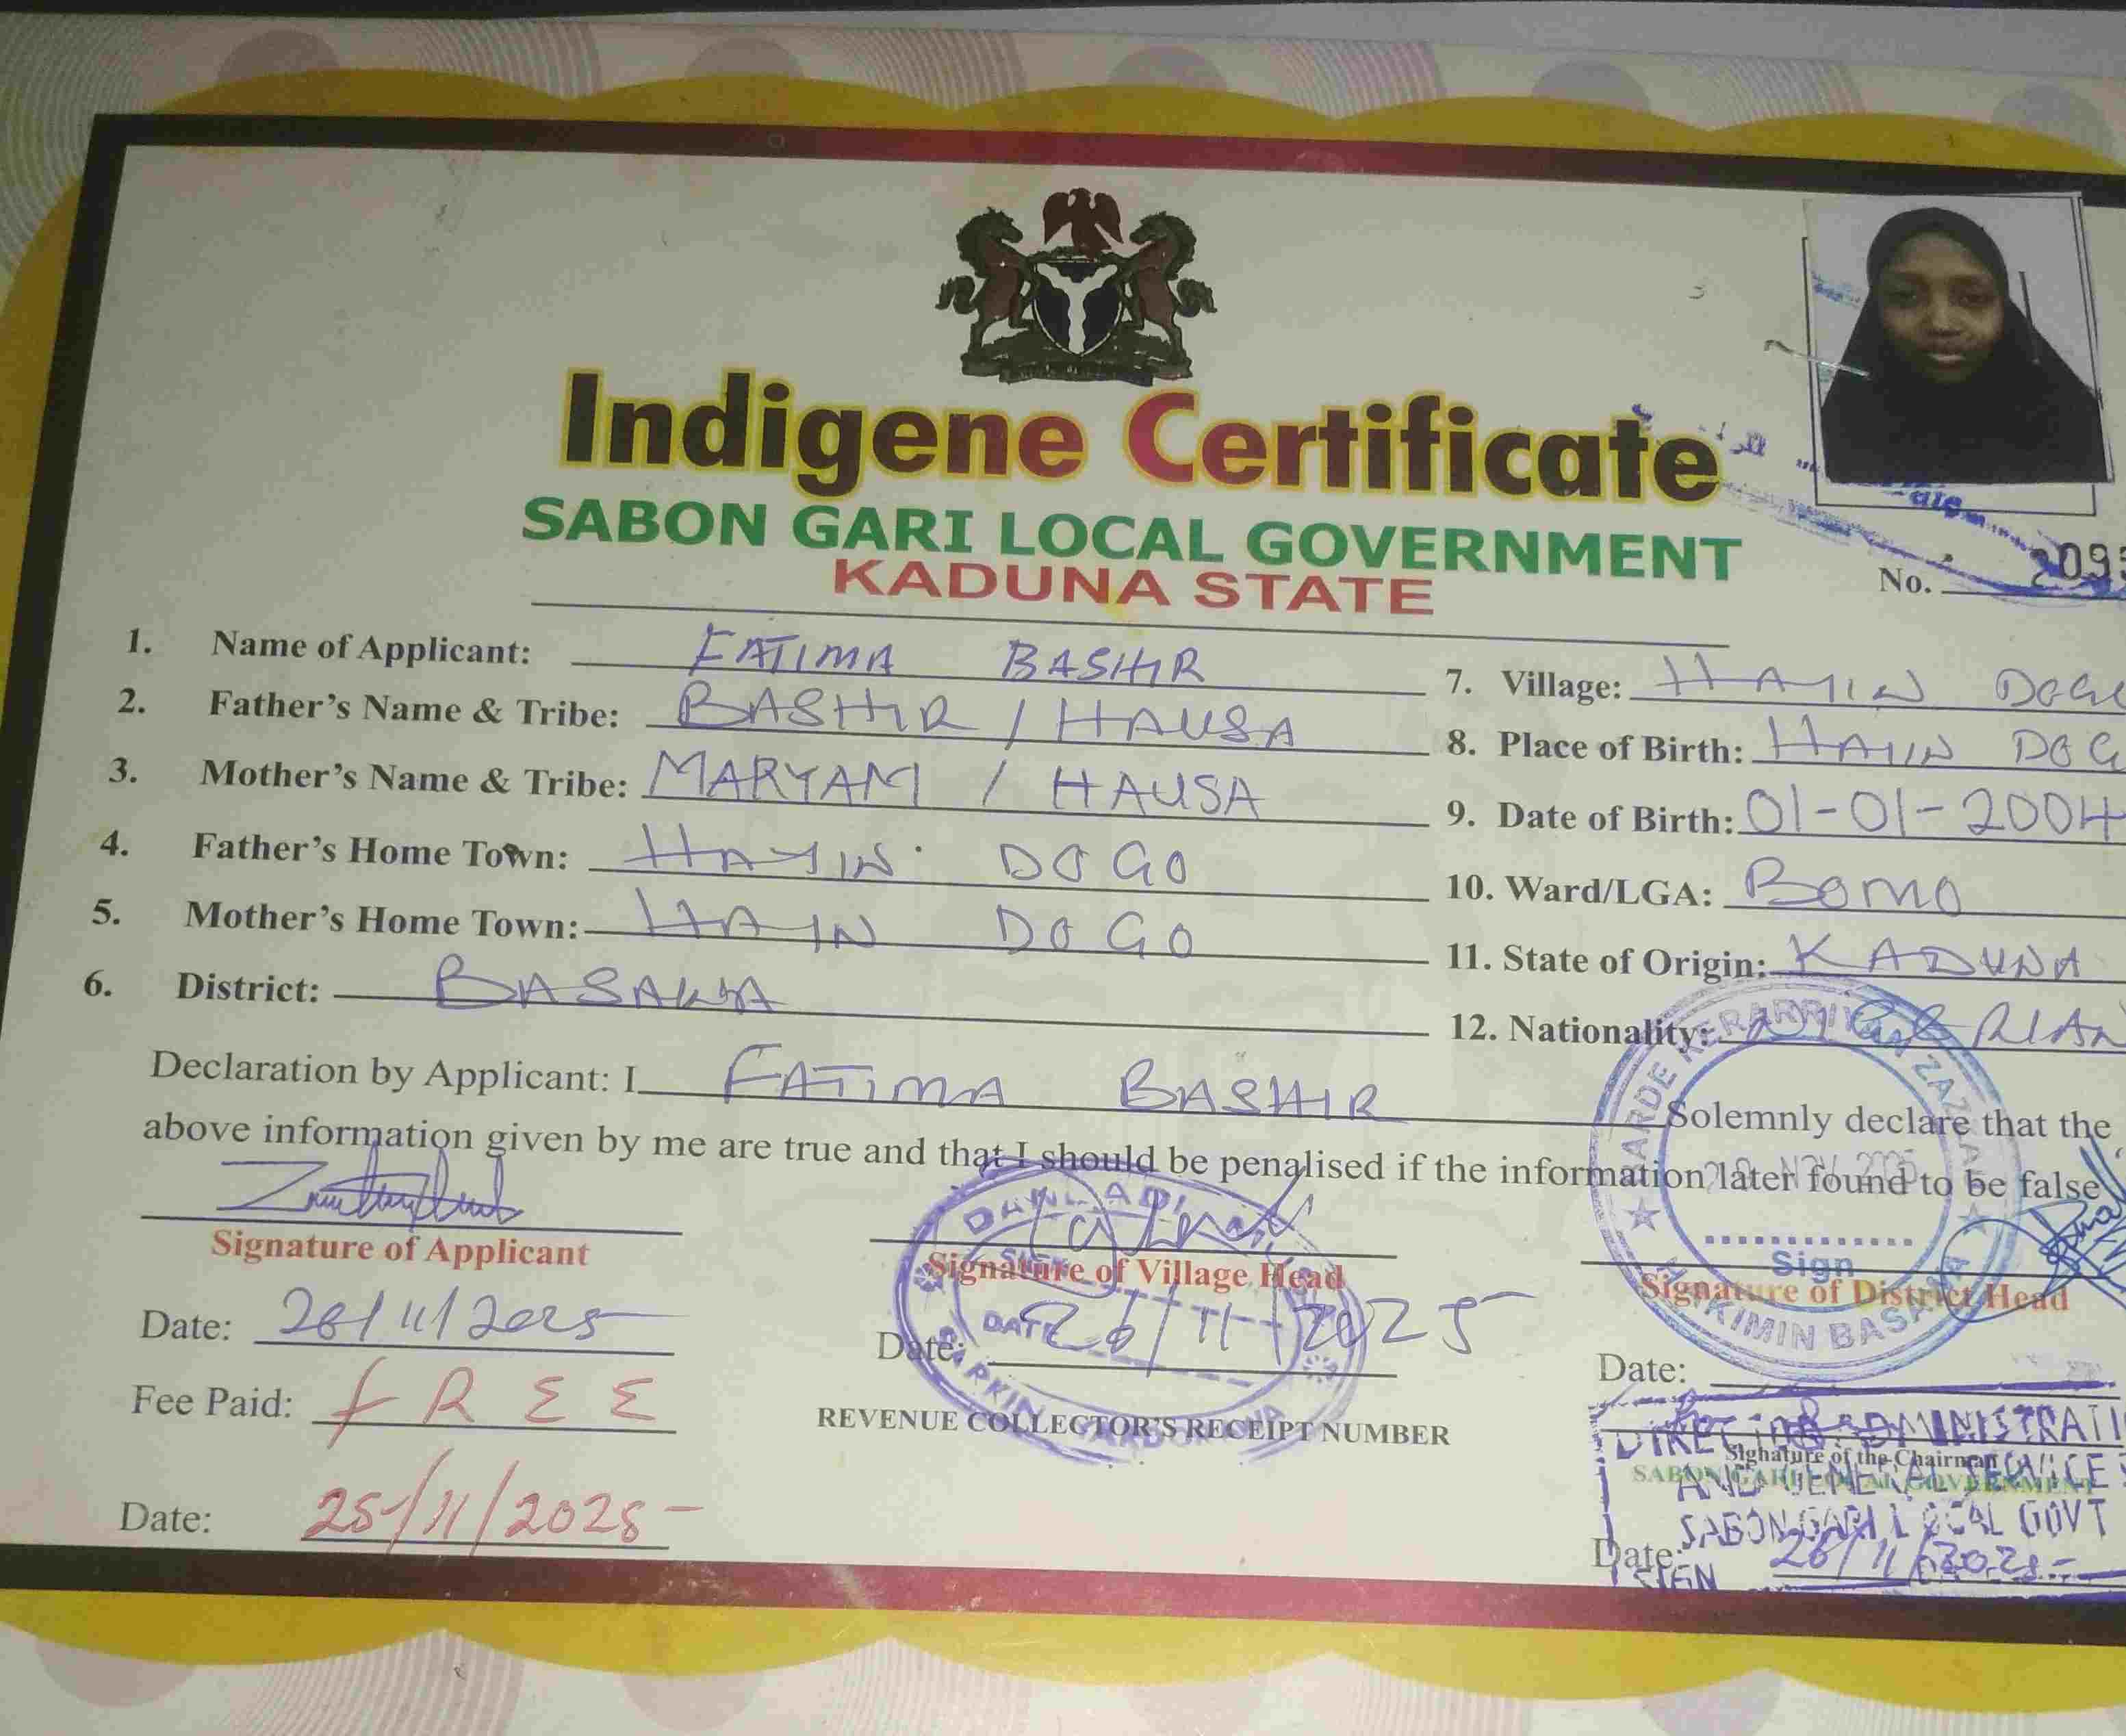 Indigene Certificate
SABON GARI LOCAL GOVERNMENT
KADUNA STATE
No. 209
1. Name of Applicant: FATIMA BASHIR
2. Father's Name & Tribe: BASHIR / HAUSA
3. Mother's Name & Tribe: MARYAM / HAUSA
4. Father's Home Town: HAYIN DOGO
5. Mother's Home Town: HAYIN DOGO
6. District: BASAWA
7. Village: HAYIN DOGO
8. Place of Birth: HAYIN DOG
9. Date of Birth: 01-01-2004
10. Ward/LGA: BOMO
11. State of Origin: KADUNA
12. Nationality: NIGERIAN
Declaration by Applicant: I FATIMA BASHIR Solemnly declare that the
above information given by me are true and that I should be penalised if the information later found to be false
Signature of Applicant
Date: 26/11/2025
Fee Paid: fREE
Date: 25/11/2025
DANLADI
Signature of Village Head
DATE
Date: 26/11/2025
SARKIN
REVENUE COLLECTOR'S RECEIPT NUMBER
ZAZZAU
NOV 2025
Sign
Signature of District Head
HAKIMIN BASAWA
Date:
DIRECTOR ADMINISTRATI
Signature of the Chairman
SABON GARI LOCAL GOVERNMENT
AND GENERAL SERVICE
SABON GARI LOCAL GOVT
Date: 26/11/2025
SIGN